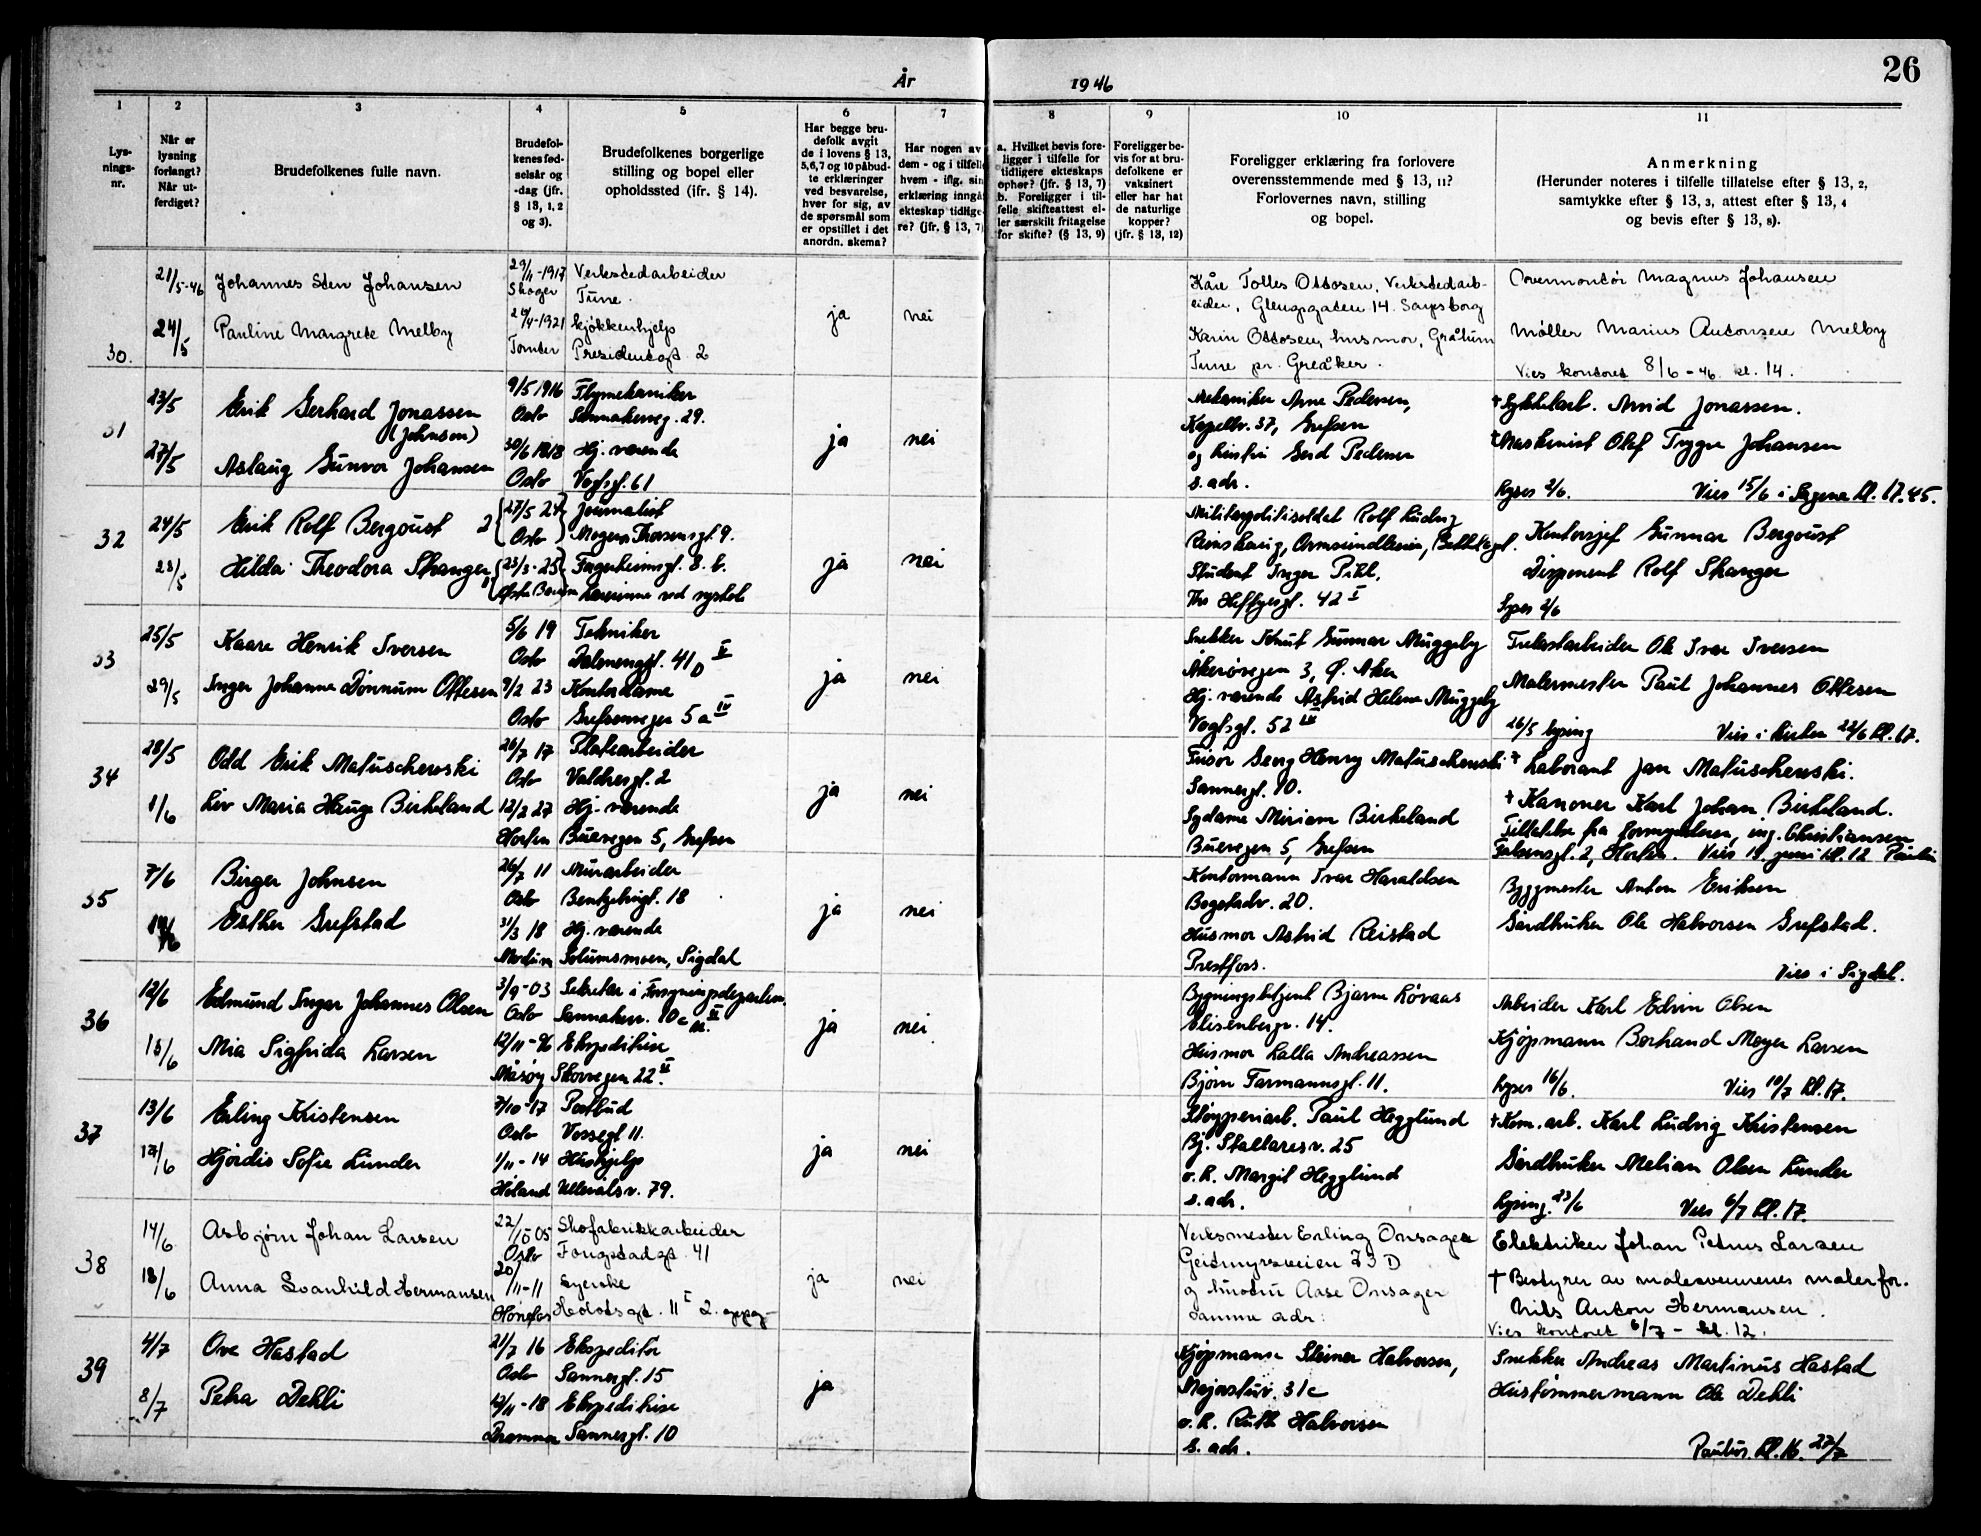 26
År 1946
1 2 3 4 5 6 7 8 9 10 11
Lys-
nings-
nr.
Når er
lysning
forlangt?
Når ut-
ferdiget?
Brudefolkenes fulle navn.
Brudefol-
kenes fød-
selsår og
-dag (jfr.
§ 13, 1, 2
og 3).
Brudefolkenes borgerlige
stilling og bopel eller
opholdssted (ifr. § 14).
Har begge bru-
defolk avgit
de i lovens § 13,
5,6,7 og 10 påbud-
te erklæringer
ved besvarelse,
hver for sig, av
de spørsmål som
er opstillet i det
anordn. skema?
Har nogen av
dem - og i tilfelle
hvem - iflg. sin
erklæring inngå
ekteskap tidlige-
re? (jfr. § 13, 7)
a. Hvilket bevis fore-
ligger i tilfelle for
tidligere ekteskaps
ophør? (jfr. § 13, 7)
b. Foreligger i til-
felle skifteattest el-
ler særskilt fritagelse
for skifte? (§ 13, 9)
Foreligger be-
vis for at bru-
defolkene er
vaksinert
eller har hat
de naturlige
kopper?
(jfr. § 13, 12)
Foreligger erklæring fra forlovere
overensstemmende med § 13, 11?
Forlovernes navn, stilling
og bopel.
Anmerkning
(Herunder noteres i tilfelle tillatelse efter § 13, 2,
samtykke efter § 13, 3, attest efter § 13, 4
og bevis efter § 13, 8).
30.
21/5-46 Johannes Sten Johansen
29/11-1917 Skoger
Verkstedarbeider
Tune.
24/5 Pauline Margrete Melby
1921 Tomter
Kjøkkenhjelp
Presidentgt. 2
ja nei
Kåre Tolles Ottosen, Verkstedarb-
eider, Glengsgaten 14. Sarpsborg
Karin Ottosen, husmor, Grålum
Tune pr. Greåker.
Ovnmontør Magnus Johansen
Møller Marius Antonsen Melby
Vies kontoret 8/6-46. kl. 14.
31
23/5 Erik Gerhard Jonassen
(Johnson)
9/5 1916 Oslo
Flymekaniker
Sannakerveg. 29.
27/5 Aslaug Gunvor Johansen
30/6 1918 Oslo
Hj. værende
Vogtsgt. 61
ja nei
Mekaniker Arne Pedersen,
Kapellv. 37, Grefsen
og hustru Gerd Pedersen
s. adr.
† Sykkelarb. Arvid Jonassen.
† Maskinist Olef Trygve Johansen
Lyses 2/6. Vies 15/6 i Sagene kl. 17.45.
32
24/5 Erik Rolf Bergquist 2
27/5 24 Oslo
Journalist
Mogens Thorsensgt. 9.
28/5 Hilda Theodora Stranger
23/3-25 Østre Bærum
Fagerheimsgt. 8. b.
Lærerinne ved
ja nei
Militærpolitisoldat Rolf Ludvig
Student Inger Pihl,
Ths Heftyesgt. 42 I
Kontorsjef Gunnar Bergquist
Disponent Rolf Stranger
Lyses 2/6
33
25/5 Kaare Henrik Iversen
5/6 19 Oslo
Tekniker
Dalenenggt. 41 D V
29/5 Inger Johanne Dønnum Ottesen
9/2 23 Oslo
Kontordame
Grefsenvegen 5 a IV
ja nei
Snekker Knut Gunnar Muggeby
Åkerøvegen 3, Ø. Aker
Hj. værende Astrid Helene Muggeby
Vogtsgt. 52 III
Trelastarbeider Ole Ivar Iversen
Malermester Paul Johannes Ottesen
26/5 lysing Vies i kirken 22/6 kl. 17.
34
28/5 Odd Erik Matuschewski
26/7 17 Oslo
Platearbeider
Valdresgt. 2
1/6 Liv Maria Hauge Birkeland
12/2 27 Horten
Hj. værende
Buevegen 5, Grefsen
ja nei
Frisør Georg Henry Matuschewski
Sannergt. 10.
Sydame Miriam Birkeland
Buevegen 5, Grefsen
† Laborant Jan Matuschewski.
† Kanoner Karl Johan Birkeland.
Tillatelse fra formynderen, ing. Christiansen
Falsensgt. 2, Horten. Vies juni kl. 12 Paulus
35
7/6 Birger Johnsen
26/7 11 Oslo
Murarbeider
Bentzebrugt. 18
Esther Grefstad
31/3 18 Modum
Hj. værende
Solumsmoen, Sigdal
ja nei
Kontormann Ivar Haraldsen
Bogstadv. 20.
Husmor Astrid Reistad
Prestfoss.
Byggmester Anton Eriksen
Gårdbruker Ole Halvorsen Grefstad.
Vies i Sigdal.
36
12/6 Edmund Ingar Johannes Olsen
3/9-03 Oslo
Sekretær i Forsyningsdepartem.
Sannakerv. 10 c
15/6 Mia Sigfrida Larsen
12/11-06 Måsøy
Ekspeditrise
Skovvegen 22 II
ja nei
Bygningsbetjent Bjarne Løvaas
Elisenbergv. 14.
Husmor Lalla Andreassen
Bjørn Farmannsgt. 11.
Arbeider Karl Edvin Olsen
Kjøpmann Berhard Meyer Larsen
Lyses 16/6. Vies 10/7 kl. 17.
37
13/6 Erling Kristensen
7/10-17 Oslo
Postbud
Vossegt 11.
17/6 Hjørdis Sofie Lunder
1/11-14 Høland
Hushjelp
Ullevålsv. 79.
ja nei
Støyperiarb. Paul Hegglund
Bj. Stallaresv. 25
o. h. Margit Hegglund
s. adr.
† Kom. arb. Karl Ludvig Kristensen
Gårdbruker Melian Olsen Lunder
Lysing 23/6 Vies 6/7 kl. 17.
38
14/6 Asbjørn Johan Larsen
22/10 05 Oslo
Skofabrikkarbeider
Fougstadgt. 41
18/6 Anna Svanhild Hermansen
20/11-11 Hønefos
Syerske
11 I 2. oppg
ja nei
Verksmester Erling Onsager
Geitmyrsveien 73 D
og hustru Aase Onsager
samme adr:
Elektriker Johan Petrus Larsen
† Bestyrer av malersvennenes malerfor.
Nils Anton Hermansen.
Vies kontoret 6/7 - kl. 12.
39
4/7 Ove Hastad
21/7 16 Oslo
Ekspeditør
Sannergt. 15
8/7 Petra Dehli
12/11-18 Drammen
Ekspeditrise
Sannergt. 10
ja
Kjøpmann Steinar Halvorsen,
Majorstuv. 31 c
o. h. Ruth Halvorsen
s. adr.
Snekker Andreas Martinus Hastad
Hustømmermann Ole Dehli
Paulus. kl. 16. 27/7